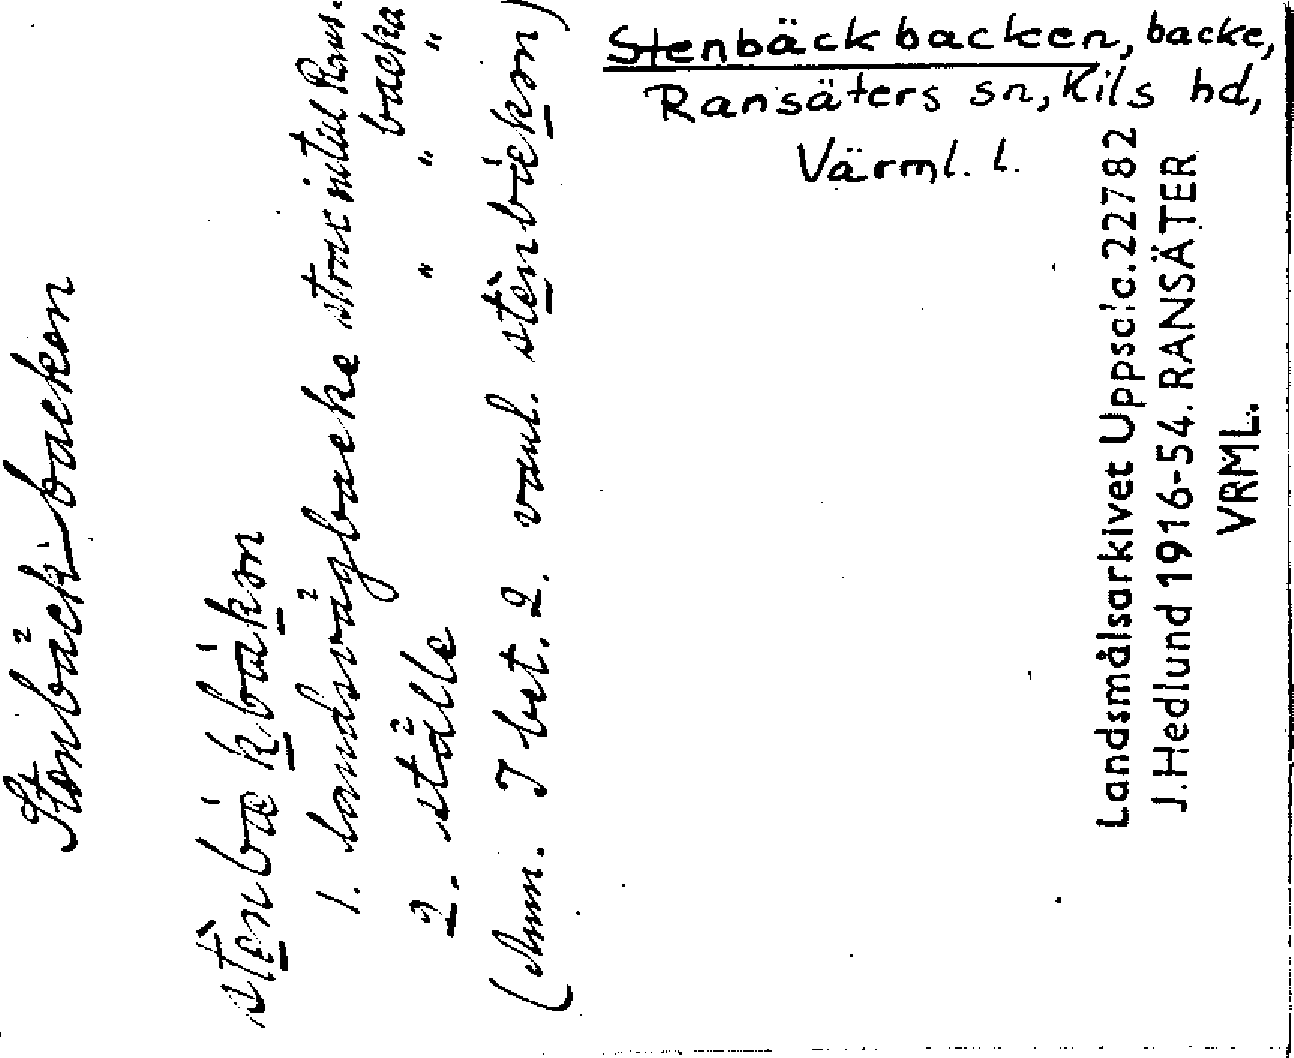 Stenbäckbacken, backe,
Ransäters sn, Kils hd,
Värml. l.
Stenbäck-backen
1. landsvägbacke strax intill Rans.
backa
2. ställe " " "
(Anm. I bet. 2. vanl.
Landsmålsarkivet Uppsala. 22782
J. Hedlund 1916-54. RANSÄTER
VRML.